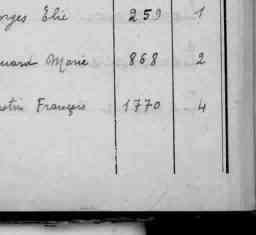 orges Elie 259 1
ouard Marie 868 2
François 1770 4